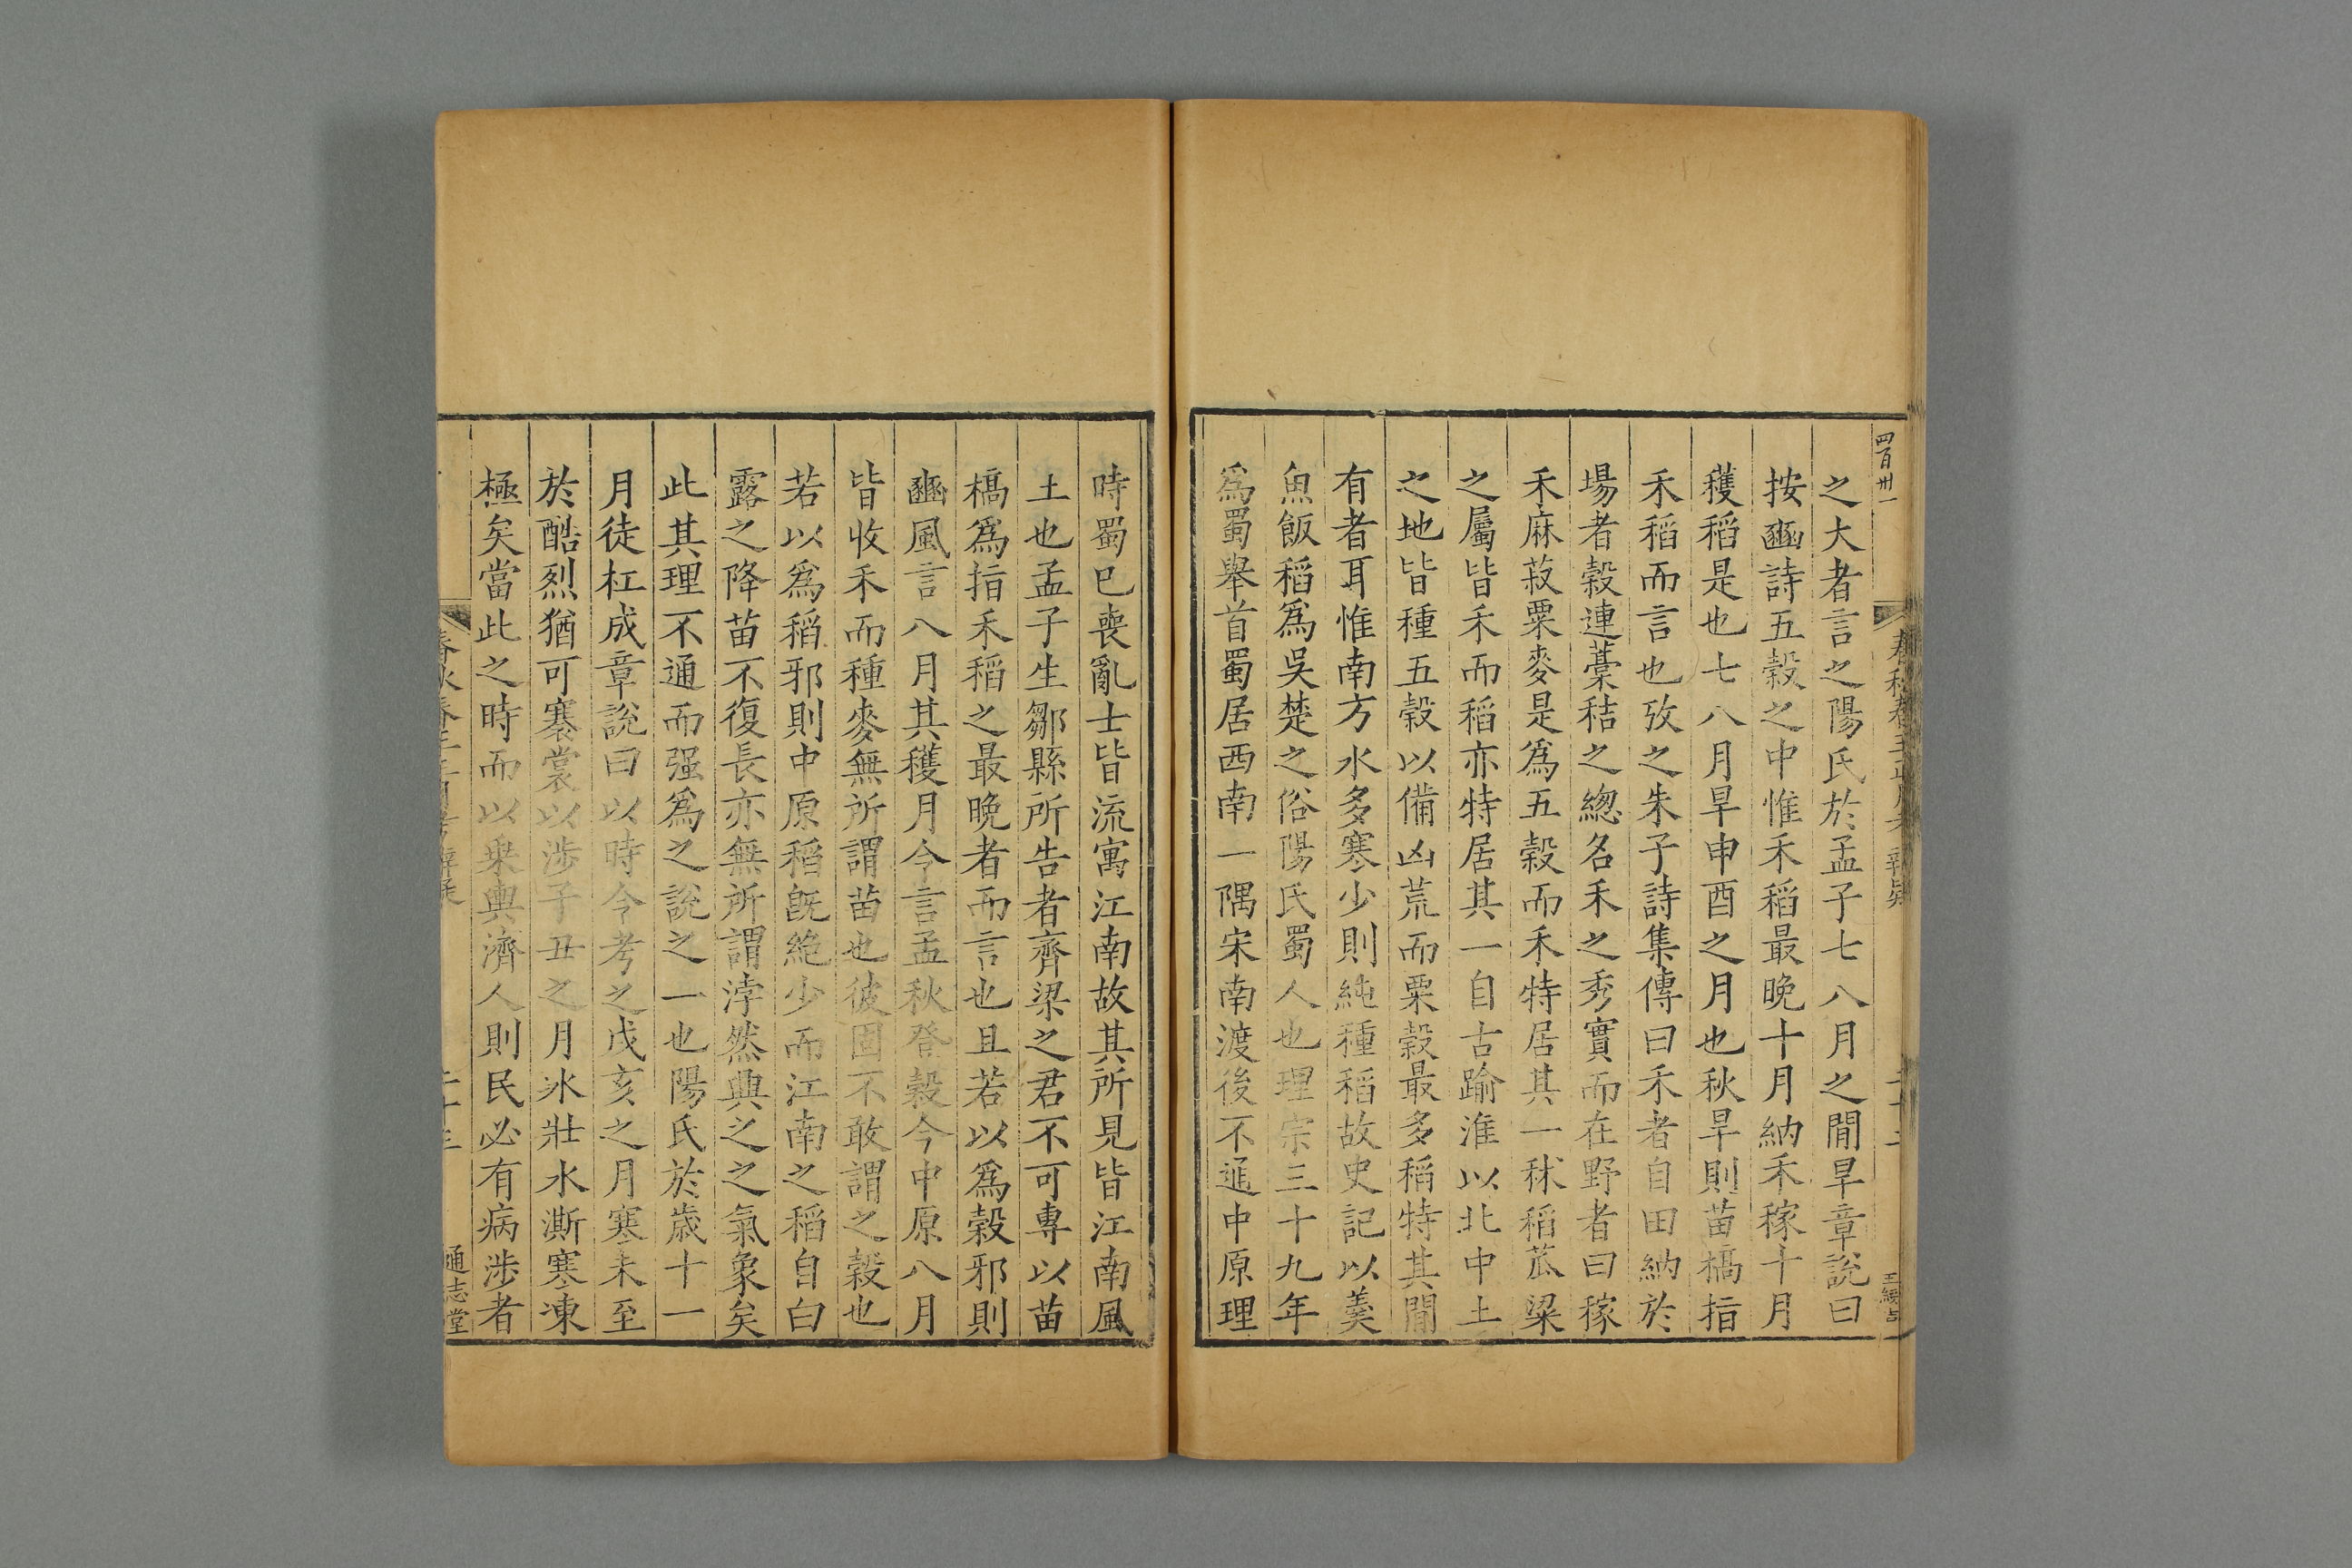 四百卅一
之大者言之陽氏於孟子七八月之閒旱章説曰
按豳詩五穀之中惟禾稻最晚十月納禾稼十月
穫稻是也七八月旱申酉之月也秋旱則苗槁指
禾稻而言也攷之朱子詩集傳曰禾者自田納於
場者穀連藁秸之緫名禾之秀實而在野者曰稼
禾麻菽粟麥是爲五穀而禾特居其一秫稻苽粱
之屬皆禾而稻亦特居其一自古踰淮以北中土
之地皆種五穀以備凶荒而粟穀最多稻特其閒
有者耳惟南方水多寒少則純種稻故史記以羹
魚飯稻爲吳楚之俗陽氏蜀人也理宗三十九年
爲蜀舉首蜀居西南一隅宋南渡後不通中原理
時蜀已喪亂士皆流寓江南故其所見皆江南風
土也孟子生鄒縣所告者齊梁之君不可專以苗
槁爲指禾稻之最晚者而言也且若以爲穀邪則
豳風言八月其穫月令言孟秋登穀今中原八月
皆收禾而種麥無所謂苗也彼固不敢謂之穀也
若以爲稻邪則中原稻旣絶少而江南之稻自白
露之降苗不復長亦無所謂浡然興之之氣象矣
此其理不通而强爲之説之一也陽氏於歲十一
月徒杠成章説曰以時令考之戌亥之月寒未至
於酷烈猶可褰裳以涉子丑之月氷壯水澌寒凍
極矣當此之時而以乗輿濟人則民必有病涉者
通志堂